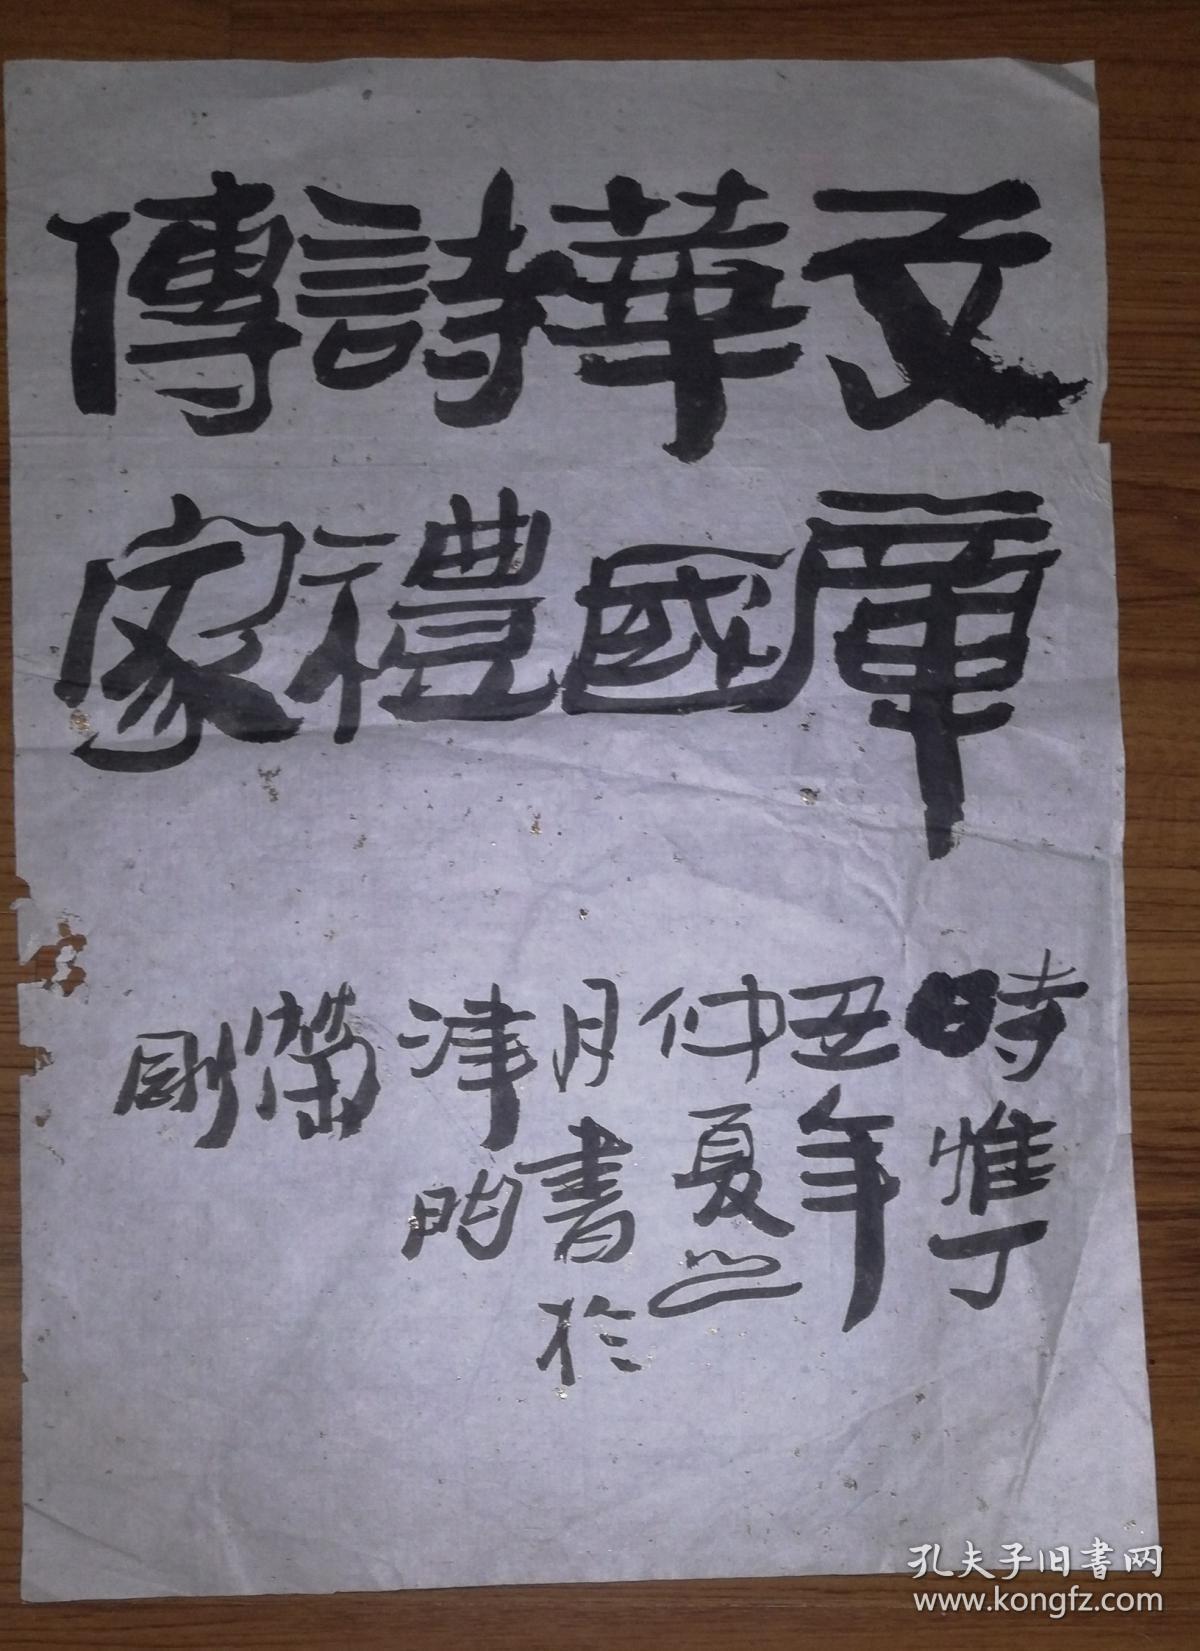 文章
華國
詩禮
傳家
時惟丁
丑年
仲夏之
月書於
津門
榮剛
孔夫子旧書网
www.kongfz.com